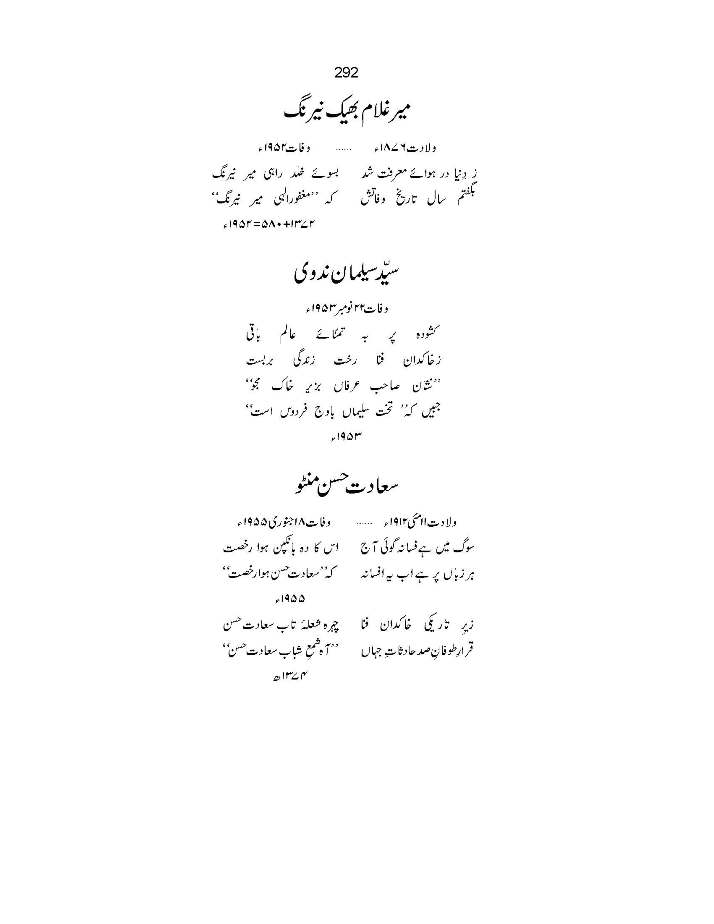 292
میر غلام بھیک نیرنگ
ولادت ۱۸۷۶ء ...... وفات ۱۹۵۲ء
ز دنیا در ہوائے معرفت شد بسوئے خلد راہی میر نیرنگ
بگفتم سال تاریخ وفاتش کہ ’’مغفورالٰہی میر نیرنگ‘‘
۱۳۷۲+۵۸۰=۱۹۵۲ء
سیّد سلیمان ندوی
وفات ۲۲ نومبر ۱۹۵۳ء
کشودہ پر بہ تمنّائے عالم باقی
زخاکدان فنا رخت زندگی بربست
’’نشان صاحب عرفاں بزیر خاک مجو‘‘
جبیں کہ’’ تخت سلیماں باوج فردوس است‘‘
۱۹۵۳ء
سعادت حسن منٹو
ولادت ۱۱مئی ۱۹۱۲ء ...... وفات ۱۸جنوری ۱۹۵۵ء
سوگ میں ہے فسانہ گوئی آج اس کا وہ بانکپن ہوا رخصت
ہر زباں پر ہے اب یہ افسانہ کہ’’سعادت حسن ہوا رخصت‘‘
۱۹۵۵ء
زیرِ تاریکی خاکدان فنا چہرہ شعلۂ تاب سعادت حسن
قرارِ طوفانِ صد حادثاتِ جہاں ’’آہ شمعِ شباب سعادت حسن‘‘
۱۳۷۴ھ